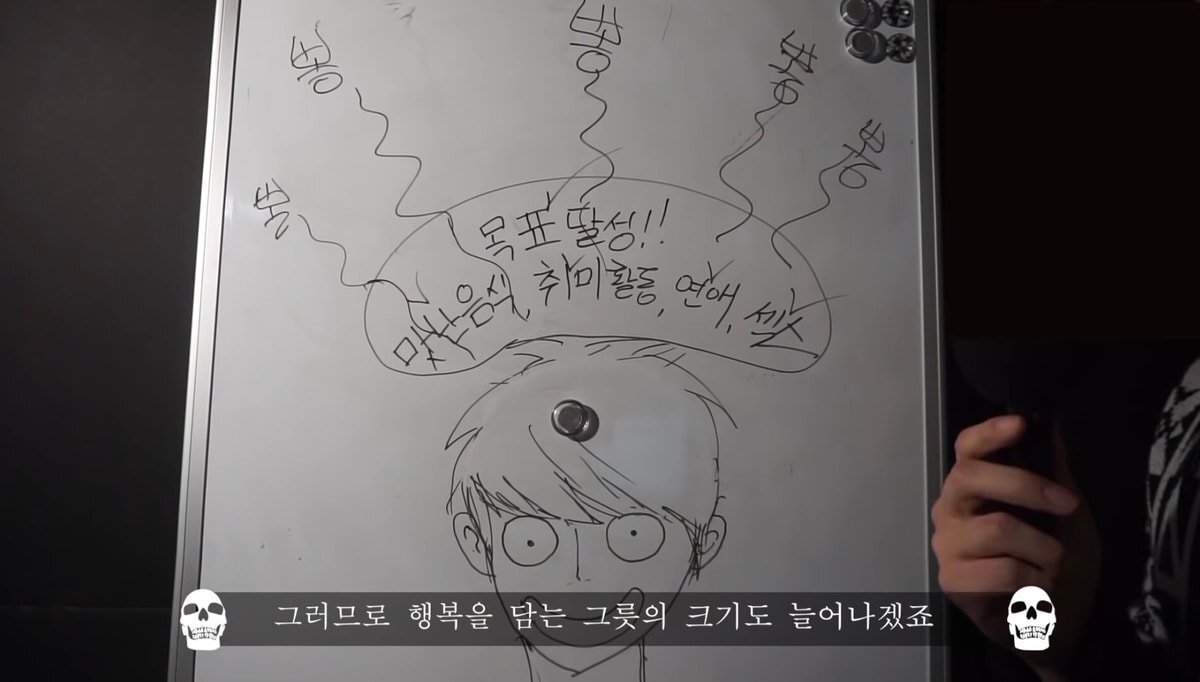 뽕
뽕
뽕
뽕
뽕
목표 딸성!!
맛난음식, 취미활동, 연애, 섹스
그러므로 행복을 담는 그릇의 크기도 늘어나겠죠